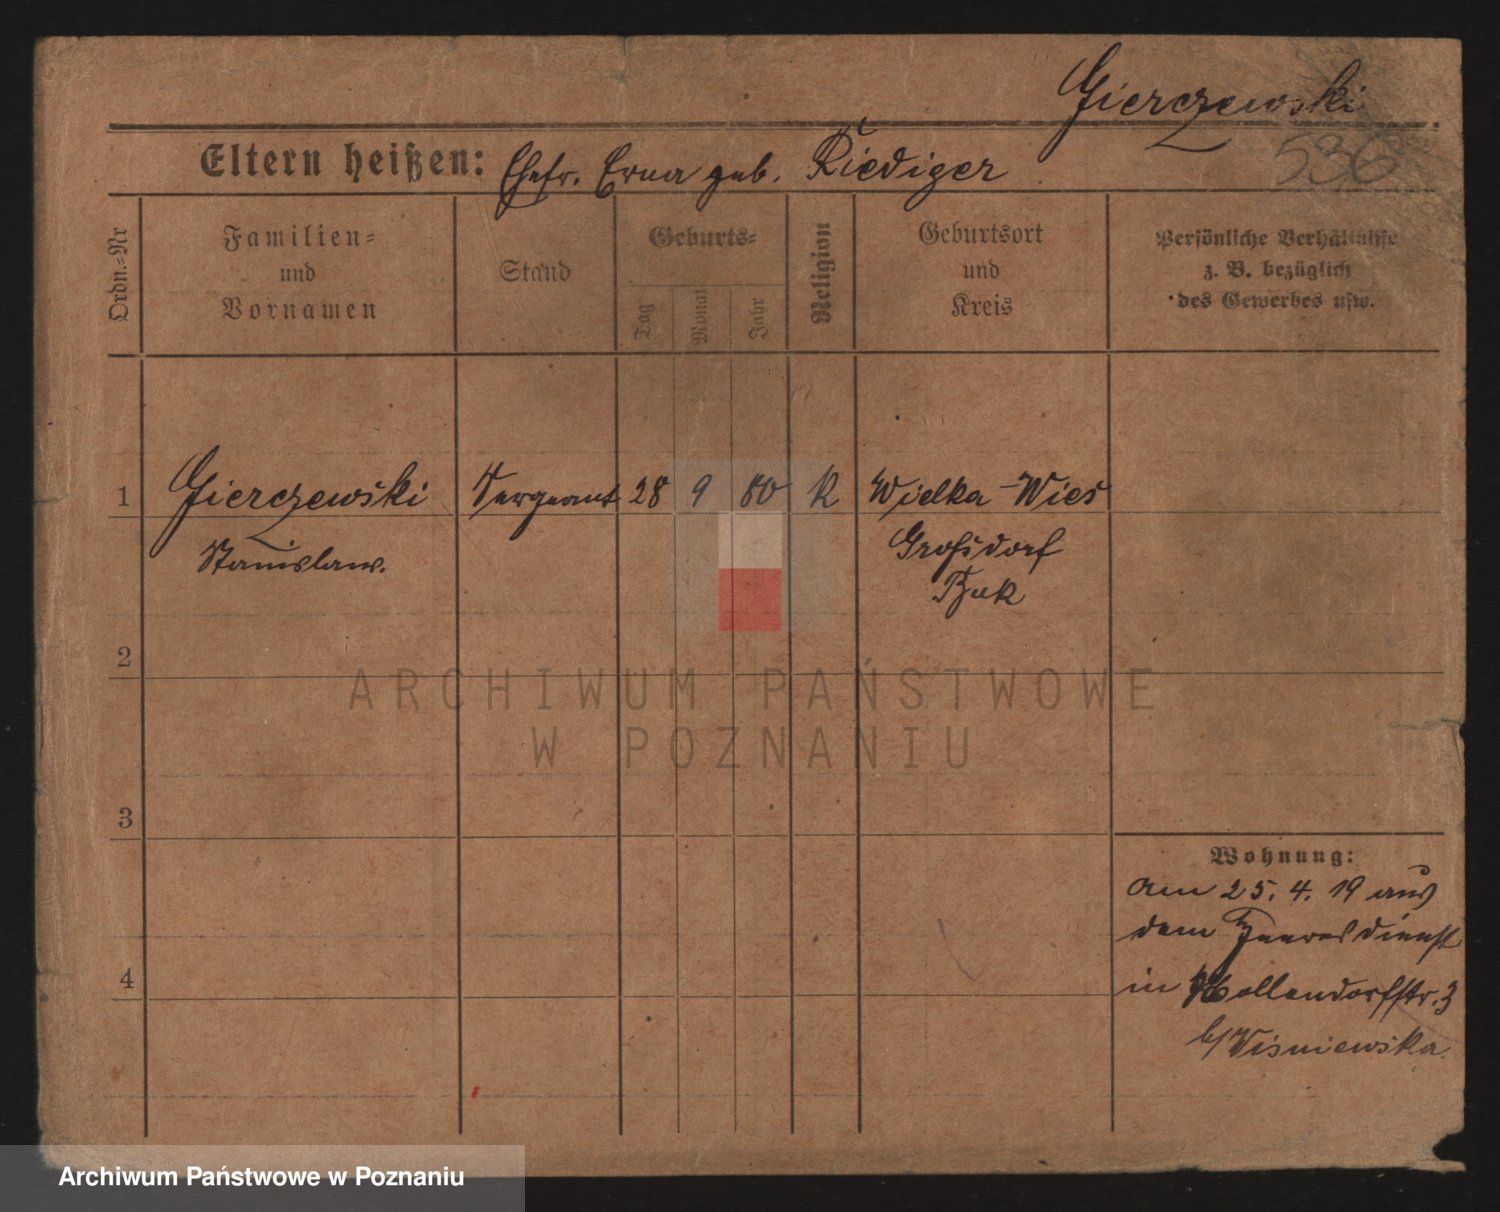 Gierczewski
536
Eltern heißen: Ehefr. Erna geb. Riediger
Ordn.=Nr
Familien=
und
Vornamen
Stand
Geburts=
Tag
Monat
Jahr
Religion
Geburtsort
und
Kreis
Persönliche Verhältnisse
z. B. bezüglich
des Gewerbes usw.
1 Gierczewski Sergeant 28 9 80 K Wielka-Wies
Stanislaw. Großdorf
Buk
2
ARCHIWUM PAŃSTWOWE
W POZNANIU
3
Wohnung:
am 25. 4. 19 aus
dem Heeresdienst
4
in Hollendorfstr. 3
b/Wisniewska
Archiwum Państwowe w Poznaniu